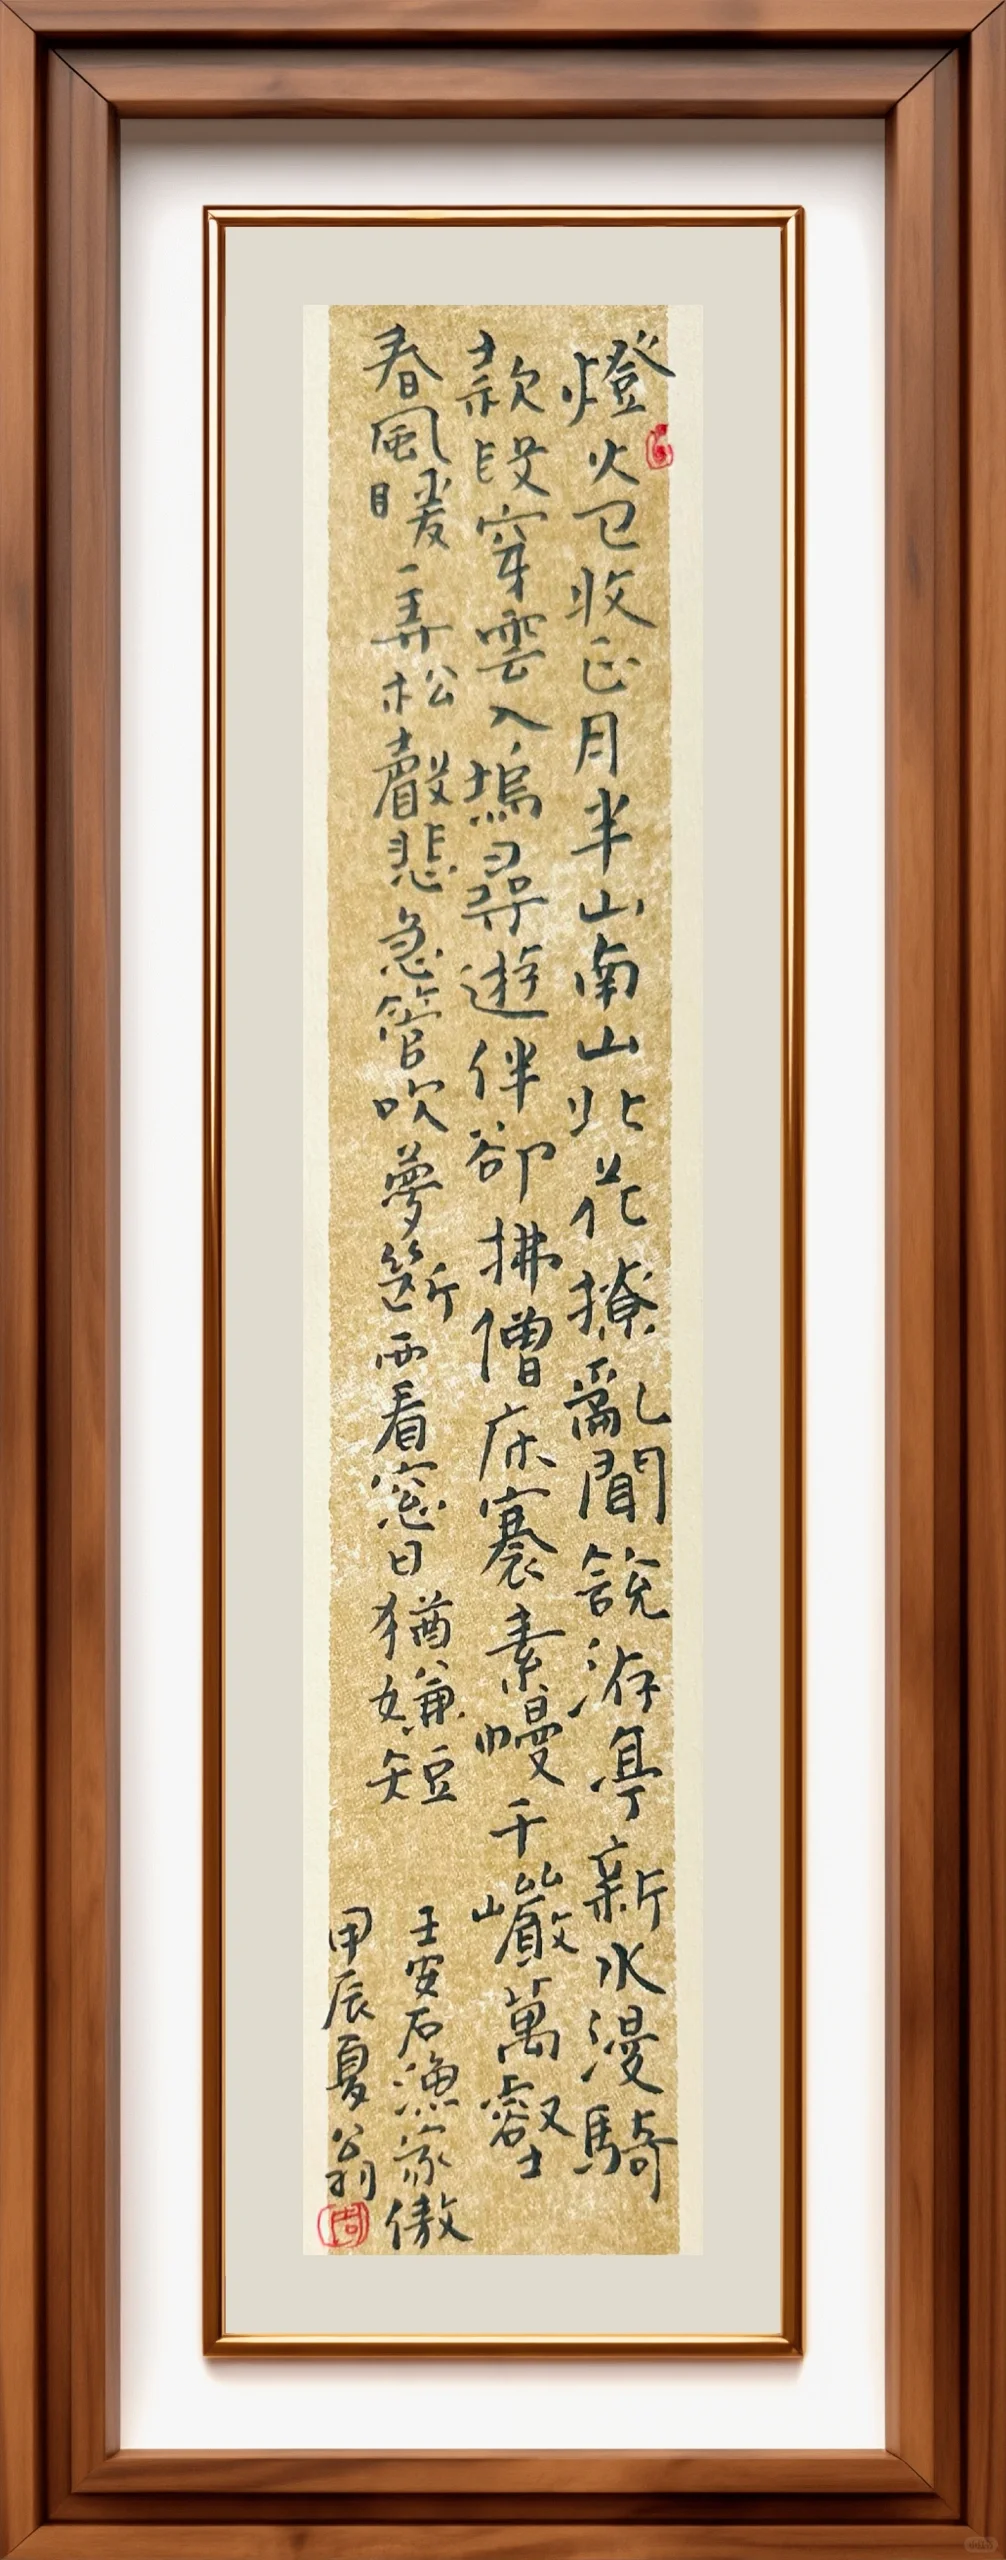 燈火已收正月半山南山北花撩亂聞說洊亭新水漫騎
款段穿雲入塢尋遊伴卻拂僧床褰素幔千巖萬壑
春風暖一弄松聲悲急管吹夢斷西看窓日猶嫌短
王安石漁家傲
甲辰夏翁